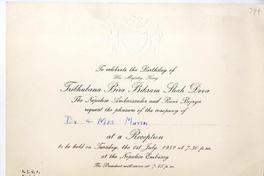 To celebrate the Birthday of
His Majesty King
Tribhubana Bira Bikram Shah Deva
The Nepalese Ambassador and Rani Bejaya
request the pleasure of the company of
Dr. & Mrs.
at a Reception
to be held on Tuesday, the 1st July 1959 at 7-30 p.m.
at the Nepalese Embassy
The President will arrive at 7-45 p.m.